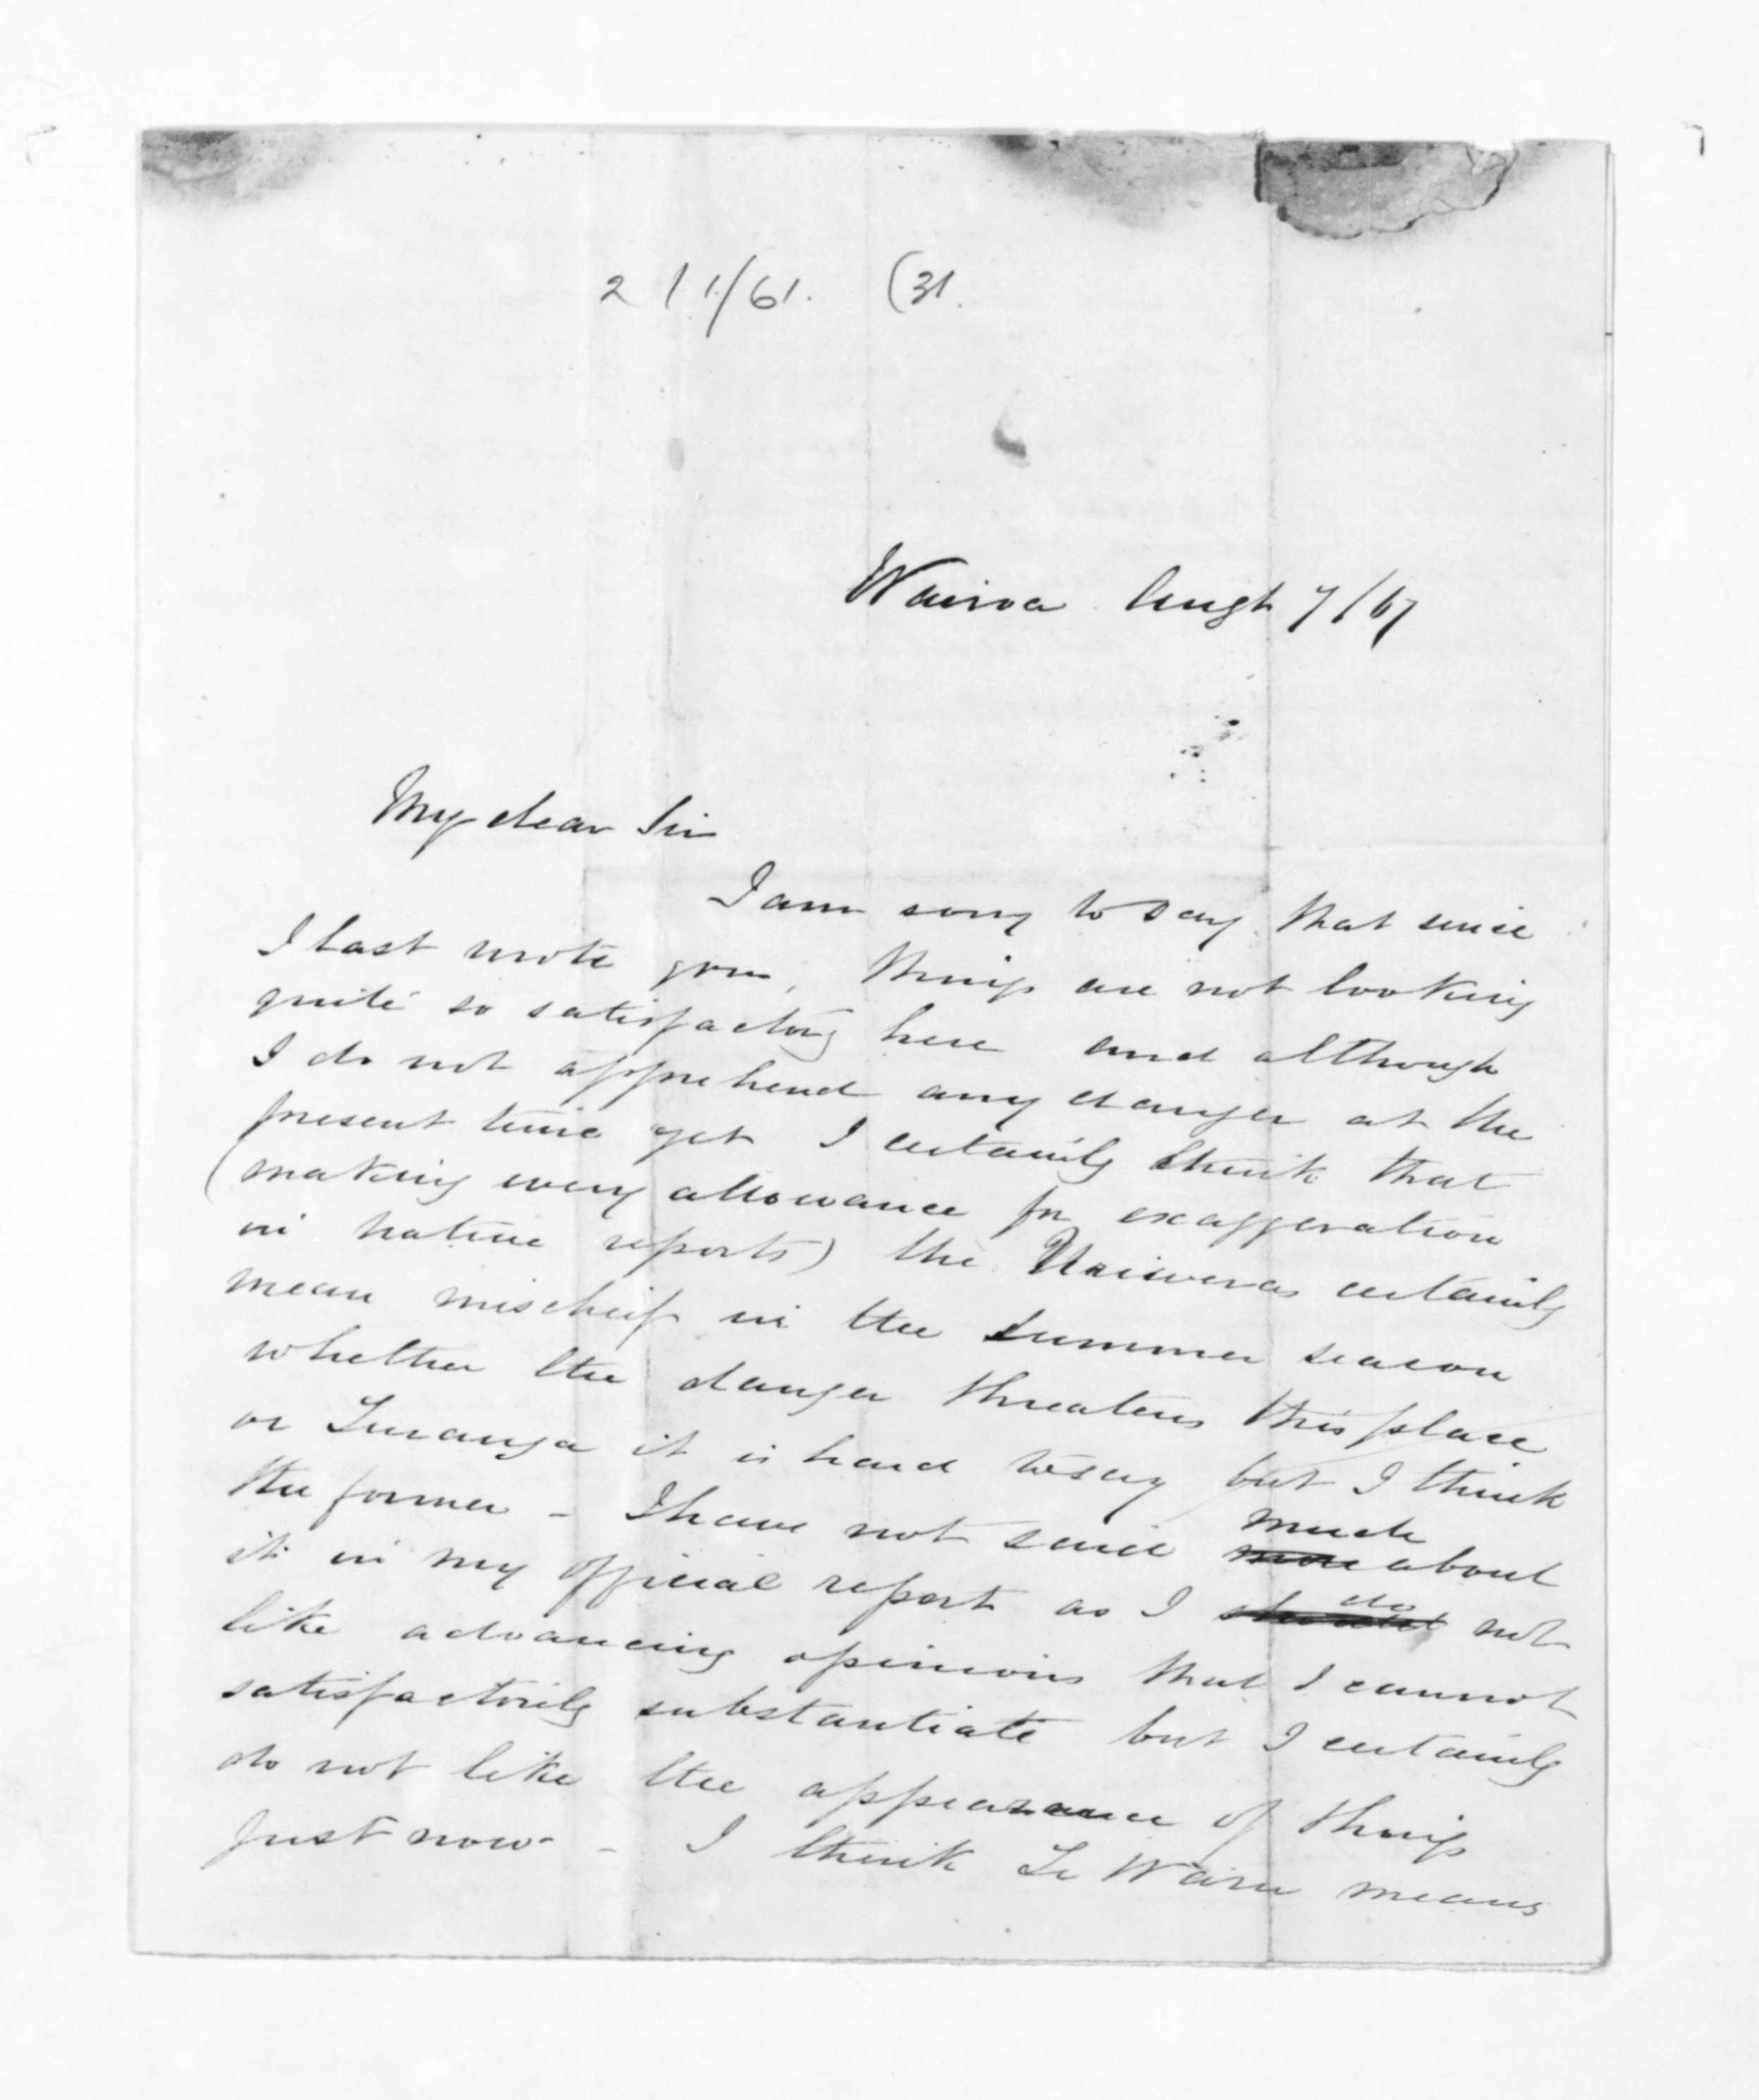 2 1 1/61. (31.
Wairoa Augt 7/67
My dear Sir
I am sorry to say that since
I last wrote you, things are not looking
quite so satisfactory here and although
I do not apprehend any danger at the
present time yet I certainly think that
(making every allowance for exaggeration
in native reports) the Uriweras certainly
mean mischeif in the summer season
whether the danger threatens this place
or Turanga it is hard to say but I think
the former - I have not said much about
it in my official report as I do not
like advancing opinions that I cannot
satisfactorily substantiate but I certainly
do not like the appearance of things
just now - I think Te Waru means